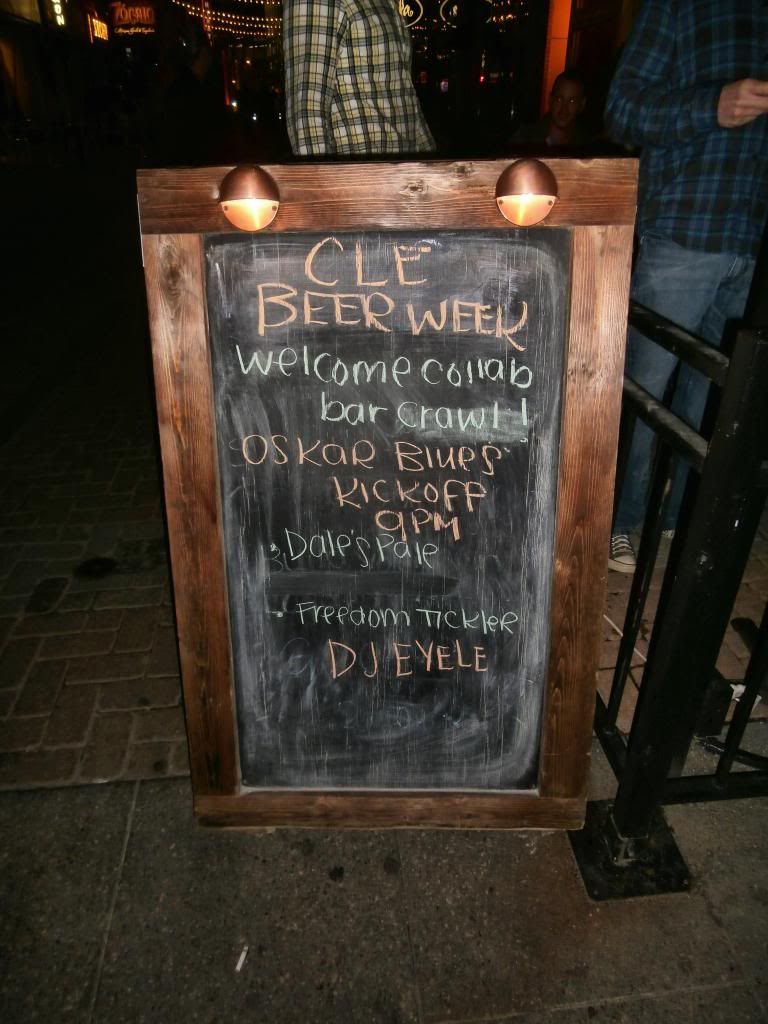 ZÓCALO
CLE
BEER WEEK
Welcome collab
bar crawl!
OSKAR Blues'
KICKOFF
9PM
• Dale's Pale
• Freedom Tickler
DJ EYELE